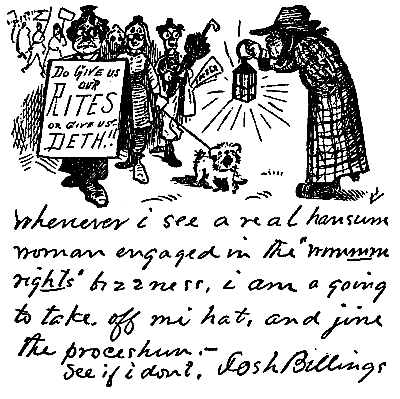 DO GIVE US
OUR
RITES
OR GIVE US
DETH!!
Whenever i see a real hansum
woman engaged in the "wimmin
rights" bizzness, i am a going
to take off mi hat, and jine
the proceshun.—
See if i dont. Josh Billings